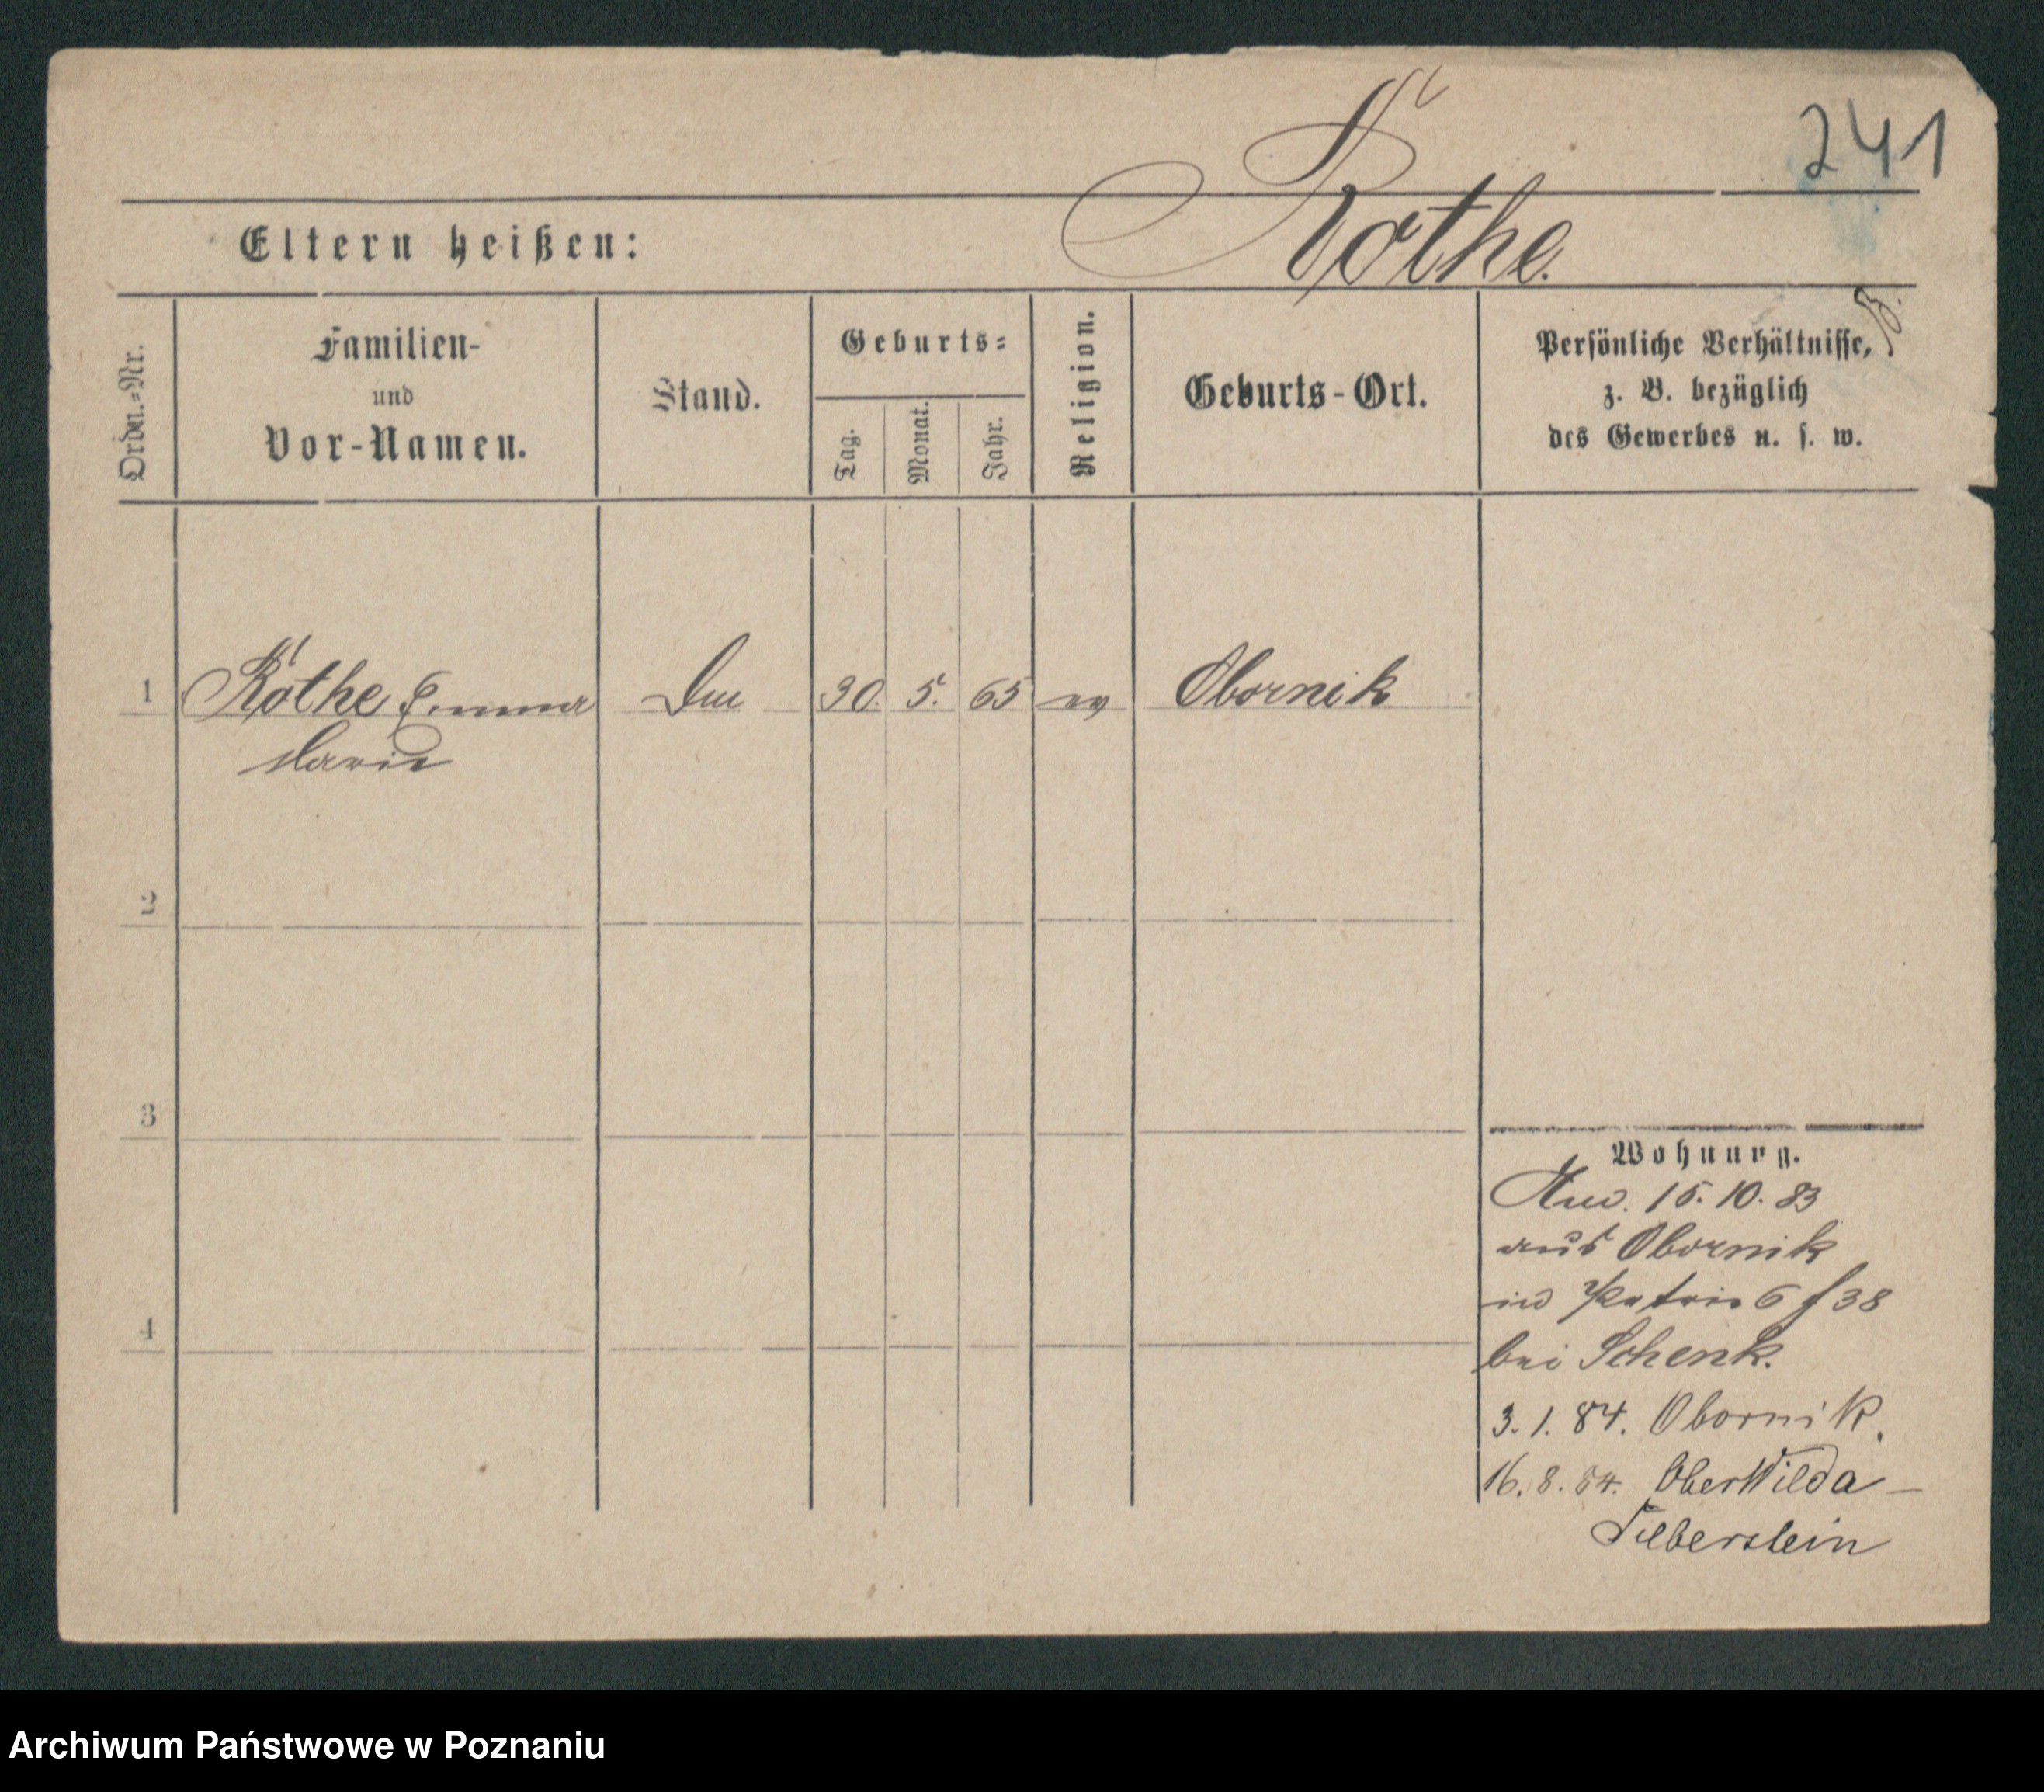 241
Röthe.
Eltern heißen:
B.
Ordn.-Nr.
Familien-
und
Vor-Namen.
Stand.
Geburts-
Tag.
Monat.
Jahr.
Religion.
Geburts-Ort.
Persönliche Verhältnisse,
z. B. bezüglich
des Gewerbes u. s. w.
1 Röthe Emma 30. 5. 65 ev Obornik
Marie
2
3
4
Wohnung.
Anz. 15. 10. 83
aus Obornik
in 6 f 38
bei Schenk.
3. 1. 84. Obornik.
16. 8. 84. Ober Wilda –
Silberstein
Archiwum Państwowe w Poznaniu